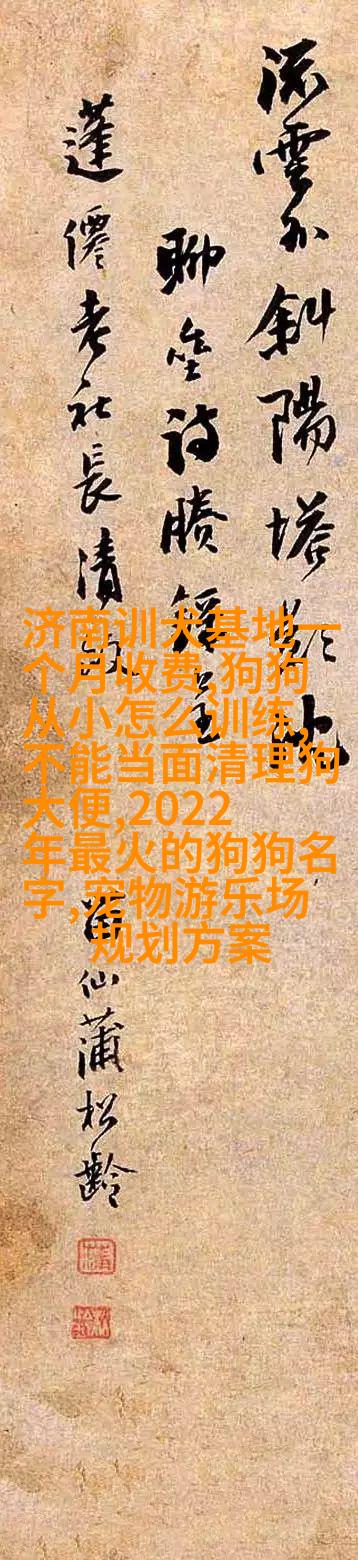 流雲外斜陽塔影
聊坐詩勝
蓬僊老社長清
仙蒲松齡
济南训犬基地一
个月收费,狗狗
从小怎么训练,
不能当面清理狗
大便,2022
年最火的狗狗名
字,宠物游乐场
规划方案